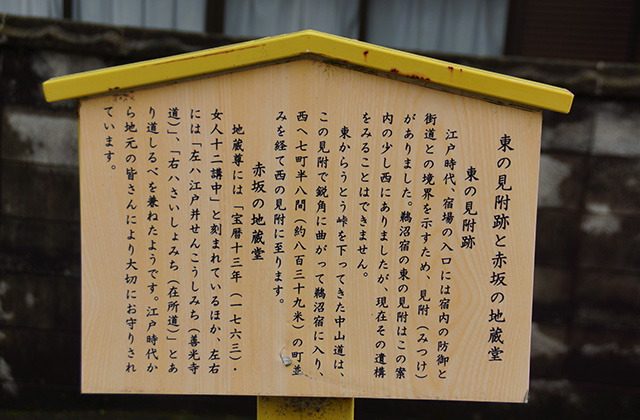 東の見附跡と赤坂の地蔵堂
東の見附跡
江戸時代、宿場の入口には宿内の防御と
街道との境界を示すため、見附（みつけ）
がありました。鵜沼宿の東の見附はこの案
内の少し西にありましたが、現在その遺構
をみることはできません。
東からうとう峠を下ってきた中山道は、
この見附で鋭角に曲がって鵜沼宿に入り、
西へ七町半八間（約八百三十九米）の町並
みを経て西の見附に至ります。
赤坂の地蔵堂
地蔵尊には「宝暦十三年（一七六三）・
女人十二講中」と刻まれているほか、左右
には「左ハ江戸并せんこうしみち（善光寺
道）」、「右ハさいしょみち（在所道）」とあ
り道しるべを兼ねたようです。江戸時代か
ら地元の皆さんにより大切にお守りされ
ています。